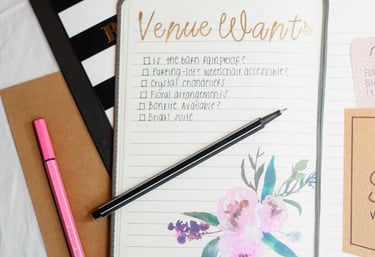 Venue Wants
□ Is the barn rainproof?
□ Parking-lot wheelchair accessible?
□ Crystal chandeliers
□ Floral arrangements
□ Bonfire available?
□ Bridal suite